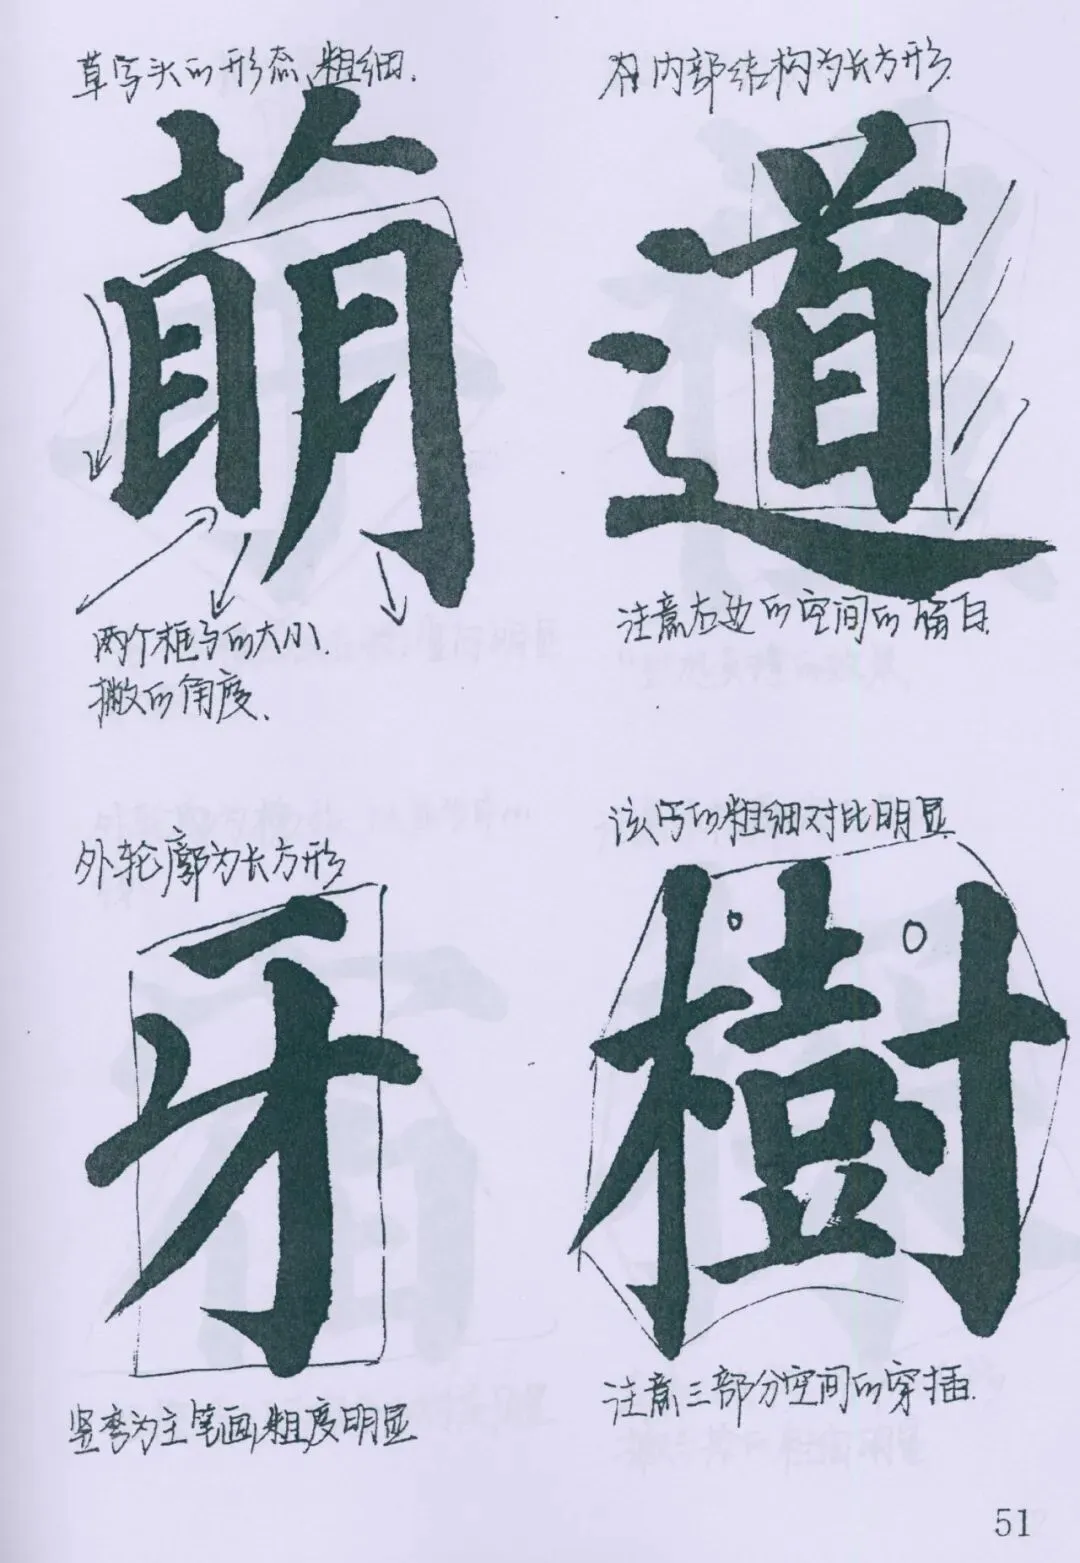 草字头的形态、粗细.
萌
两个框子的大小.
撇的角度.
内部结构为长方形
道
注意右边的空间的留白.
外轮廓为长方形
牙
竖弯为主笔画,粗度明显
该字的粗细对比明显
樹
注意三部分空间的穿插.
51